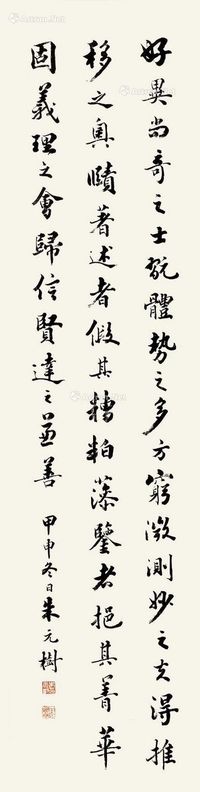 好異尚奇之士翫體勢之多方窮微測妙之夫得推
移之奧賾著述者假其糟粕藻鑒者挹其菁華
固義理之會歸信賢達之兼善
甲申冬日朱元樹